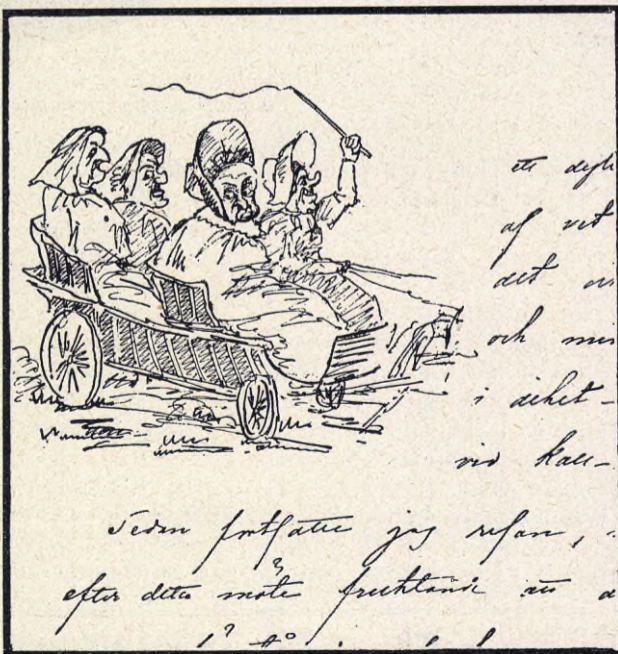 ett
af vet
det
och
i diket -
vid kall-
Sedan fortsatte jag resan,
efter detta möte fruktande att